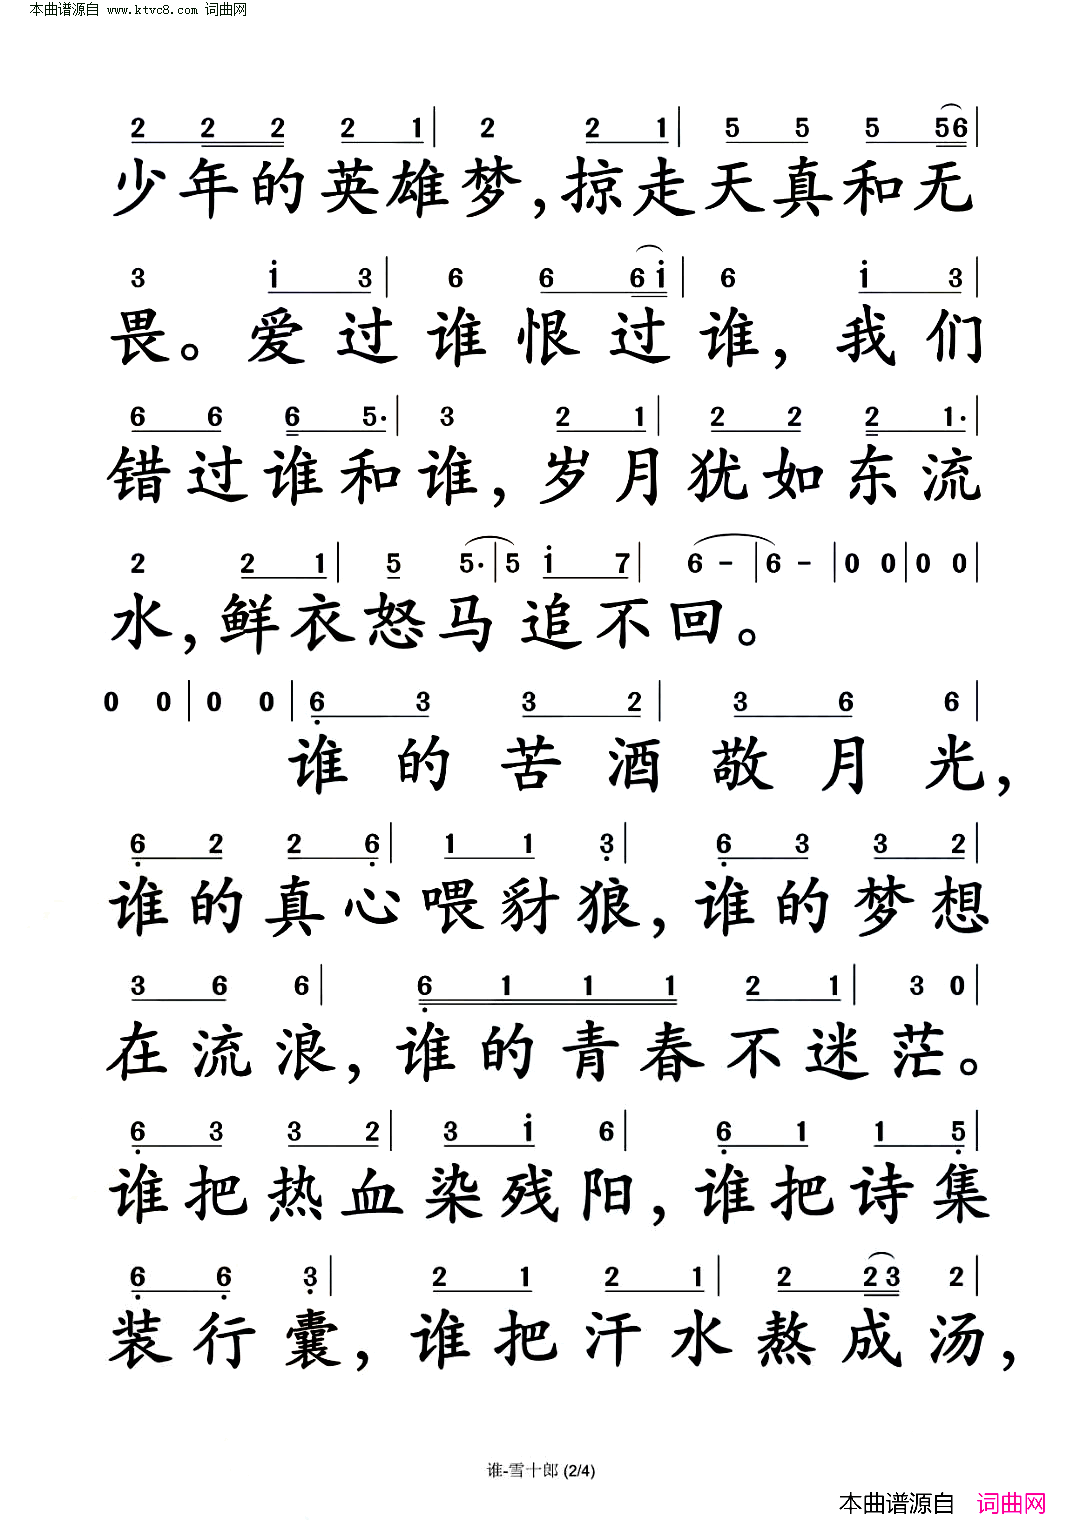 本曲谱源自 www.ktvc8.com 词曲网
2 2 2 2 1 | 2 2 1 | 5 5 5 56 |
少年的英雄梦,掠走天真和无
3 i 3 | 6 6 6i | 6 i 3 |
畏。爱过谁恨过谁,我们
6 6 6 5· | 3 2 1 | 2 2 2 1· |
错过谁和谁,岁月犹如东流
2 2 1 | 5 5· | 5 i 7 | 6 - | 6 - | 0 0 | 0 0 |
水,鲜衣怒马追不回。
0 0 | 0 0 | 6 3 3 2 | 3 6 6 |
谁的苦酒敬月光,
6 2 2 6 | 1 1 3 | 6 3 3 2 |
谁的真心喂豺狼,谁的梦想
3 6 6 | 6 1 1 1 2 1 | 3 0 |
在流浪,谁的青春不迷茫。
6 3 3 2 | 3 i 6 | 6 1 1 5 |
谁把热血染残阳,谁把诗集
6 6 3 | 2 1 2 1 | 2 23 2 |
装行囊,谁把汗水熬成汤,
谁-雪十郎 (2/4)
本曲谱源自 词曲网